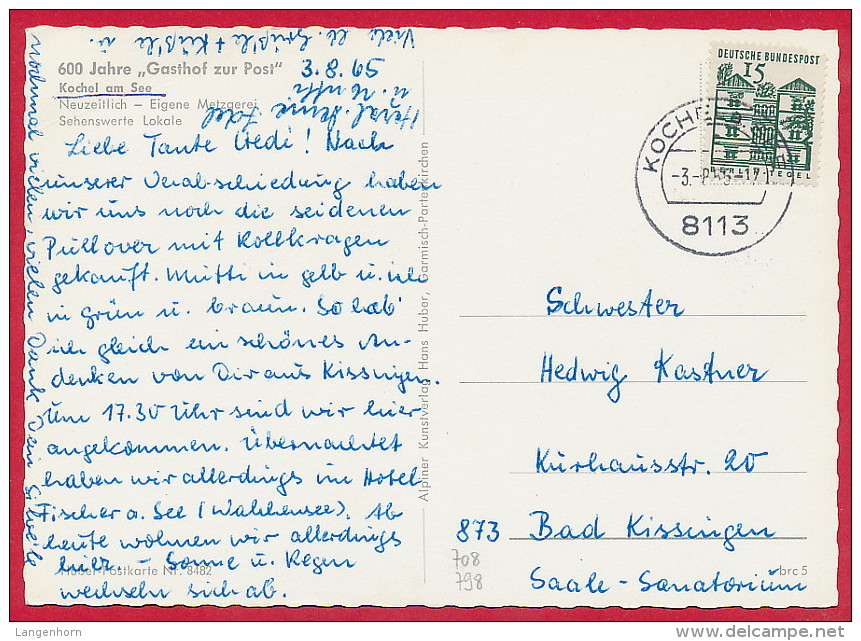 600 Jahre „Gasthof zur Post"
Kochel am See
Neuzeitlich – Eigene Metzgerei
Sehenswerte Lokale
3.8.65
Liebe Tante Hedi! Nach
unserer Verabschiedung haben
wir uns noch die seidenen
Pullover mit Rollkragen
gekauft. Mutti in gelb u. ich
in grün u. braun. So hab'
ich gleich ein schönes An-
denken von Dir aus Kissingen.
Um 17.30 Uhr sind wir hier
angekommen. Übernachtet
haben wir allerdings im Hotel
Fischer a. See (Walchensee). Ab
heute wohnen wir allerdings
hier. – Sonne u. Regen
wechseln sich ab.
Huber-Postkarte Nr. 8482
nochmal vielen, vielen Dank Dein
Viele Grüße + Küsse
u. Mutti
Alpiner Kunstverlag Hans Huber, Garmisch-Partenkirchen
DEUTSCHE BUNDESPOST
15
BERLIN-TEGEL
KOCHEL
8113
Schwester
Hedwig Kastner
Kurhausstr. 20
873 Bad Kissingen
Saale-Sanatorium
708
798
brc 5
Langenhorn
www.delcampe.net